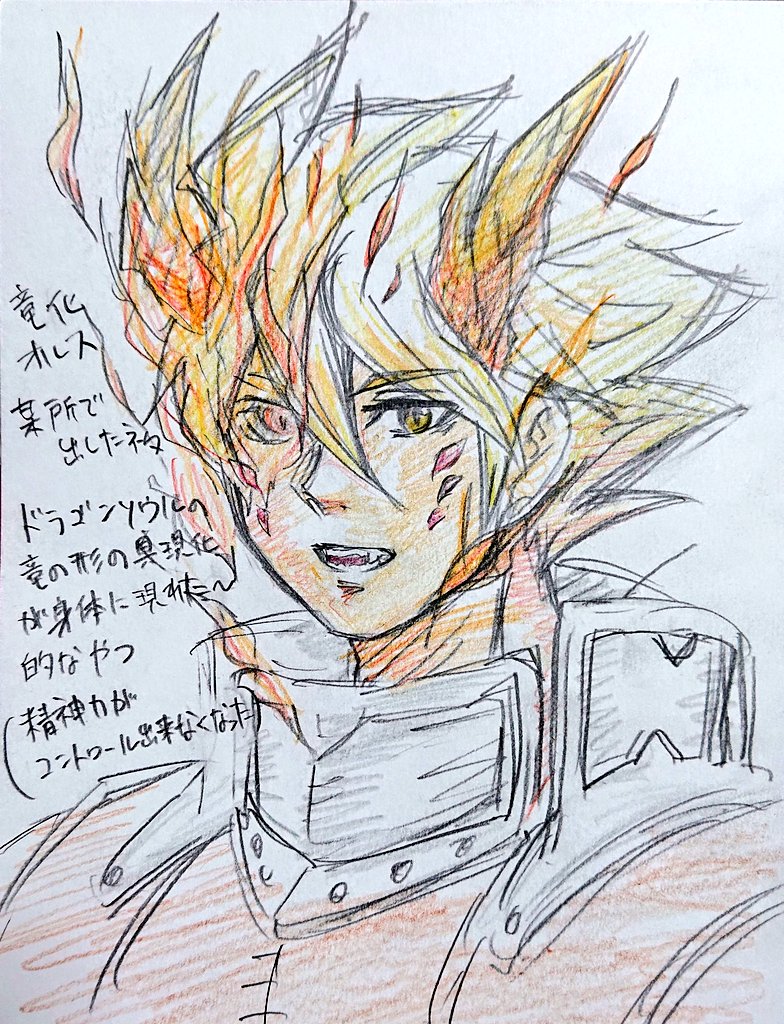 竜化
オレス
某所で
出したネタ
ドラゴンソウルの
竜の形の具現化
が身体に現れた〜
的なやつ
(精神力が
コントロール出来なくなった)